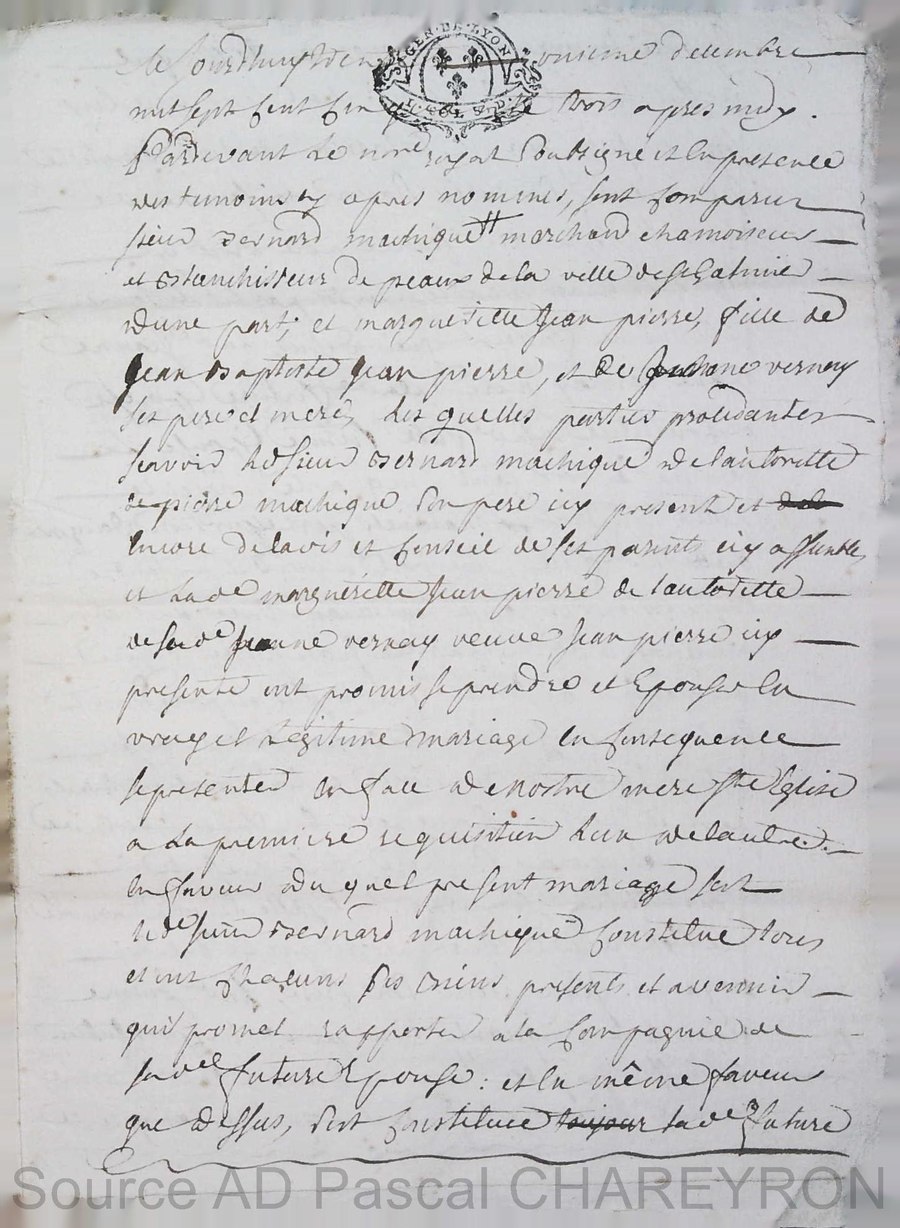 ce Jourdhuy onsieme decembre
mil sept cent trois apres midy .
Pardevant le nore royal soubsigné et en presence
des temoins cy apres nommés, sont comparu
sieur Bernard machique marchand chamoiseur
et Blanchisseur de peaux de la ville de St Galmier
d'une part, et margueritte Jean pierre, fille de
Jean Baptiste Jean pierre, et de Jeanne vernay
ses pere et mere, des quelles parties procedantes
scavoir led sieur Bernard machique de lautoritte
de pierre machique son pere icy present et
encore de lavis et conseil de ses parents icy assemblés
et lade marguéritte Jean pierre de lautoritte
de lade Jeanne vernay veuve Jean pierre icy
presente ont promis se prendre et Epouser en
vray et Legitime mariage en consequence
se presenter en face de nostre mere ste Eglise
a la premiere requisition lun de lautre.
en faveur du quel present mariage sest
led sieur Bernard machique constitué tous
et un chacuns ses biens présents et avenir
qui promet rapporter a la compagnie de
sade future Epouse : et en même faveur
que dessus, sest constituée toujour lade future
GEN·DE·LYON
Source AD Pascal CHAREYRON